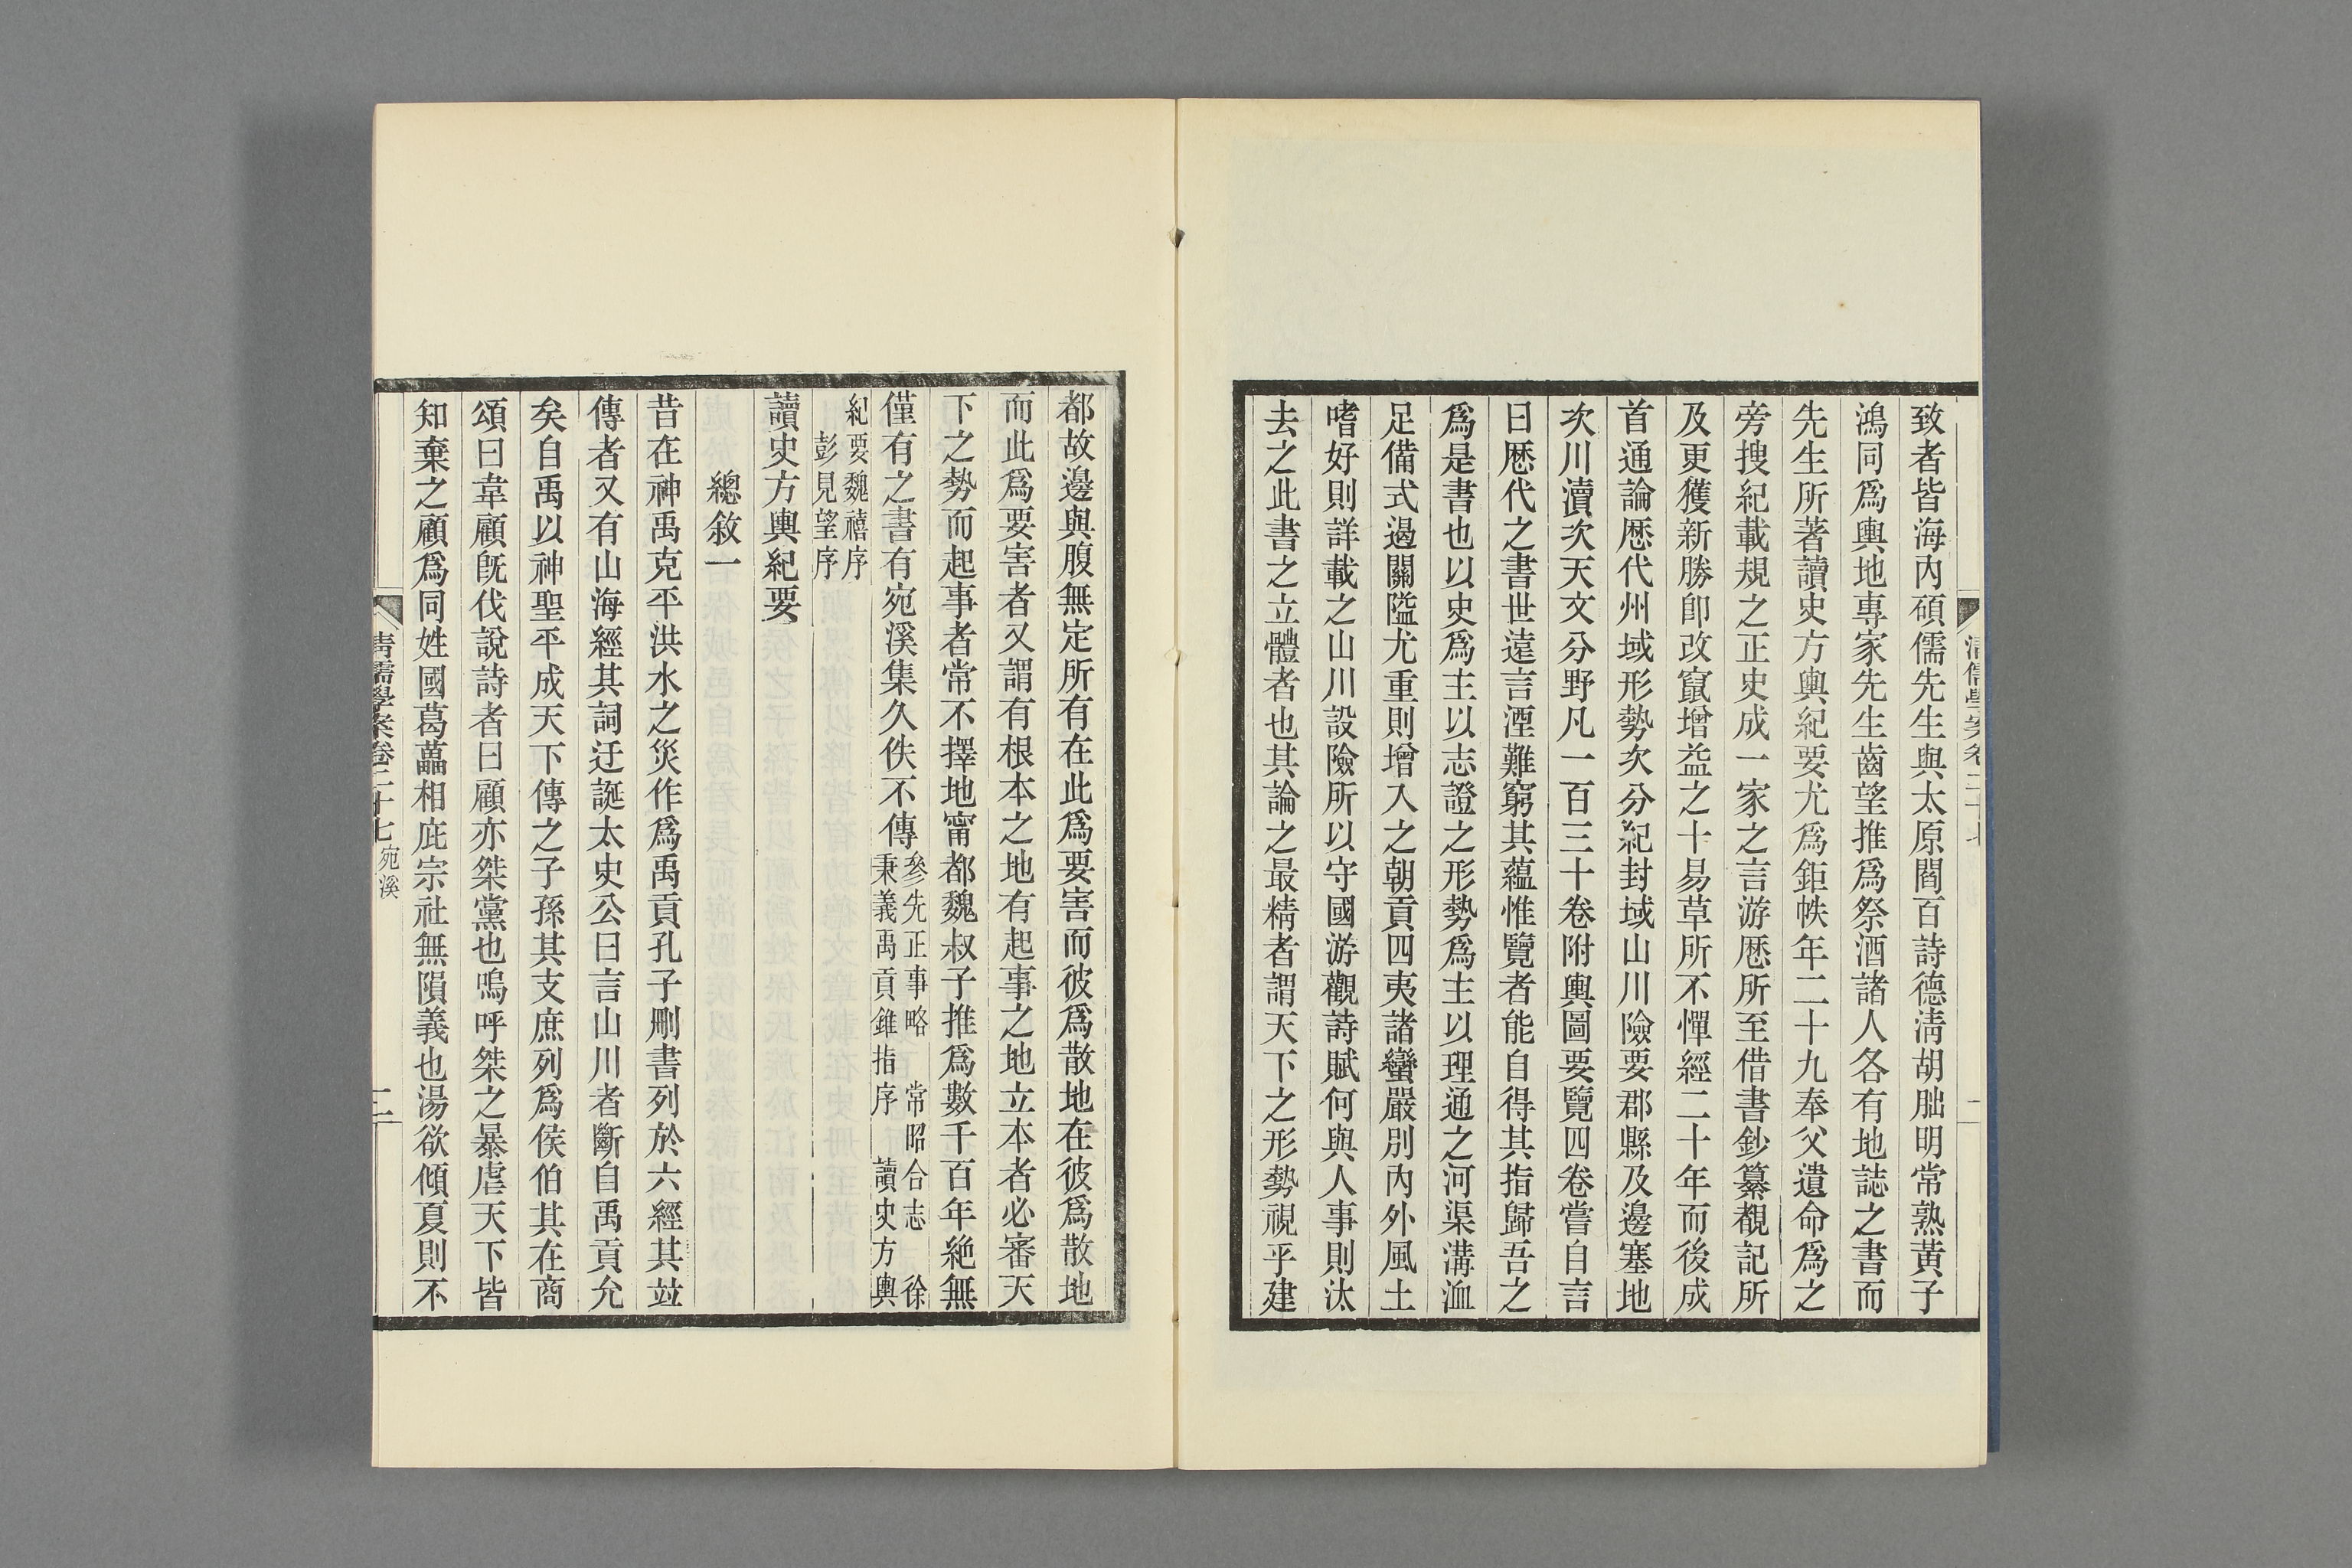 致者皆海內碩儒先生與太原閻百詩德淸胡朏明常熟黃子
鴻同爲輿地專家先生齒望推爲祭酒諸人各有地誌之書而
先生所著讀史方輿紀要尤爲鉅帙年二十九奉父遺命爲之
旁搜紀載規之正史成一家之言游歷所至借書鈔纂覩記所
及更獲新勝卽改竄增益之十易草所不憚經二十年而後成
首通論歷代州域形勢次分紀封域山川險要郡縣及邊塞地
次川瀆次天文分野凡一百三十卷附輿圖要覽四卷嘗自言
曰歷代之書世遠言湮難窮其蘊惟覽者能自得其指歸吾之
爲是書也以史爲主以志證之形勢爲主以理通之河渠溝洫
足備式遏關隘尤重則增入之朝貢四夷諸蠻嚴別內外風土
嗜好則詳載之山川設險所以守國游觀詩賦何與人事則汰
去之此書之立體者也其論之最精者謂天下之形勢視乎建
都故邊與腹無定所有在此爲要害而彼爲散地在彼爲散地
而此爲要害者又謂有根本之地有起事之地立本者必審天
下之勢而起事者常不擇地甯都魏叔子推爲數千百年絶無
僅有之書有宛溪集久佚不傳
參先正事略 常昭合志 徐
秉義禹貢錐指序 讀史方輿
紀要魏禧序
彭見望序
讀史方輿紀要
總敘一
昔在神禹克平洪水之災作爲禹貢孔子刪書列於六經其竝
傳者又有山海經其詞迂誕太史公曰言山川者斷自禹貢允
矣自禹以神聖平成天下傳之子孫其支庶列爲侯伯其在商
頌曰韋顧旣伐說詩者曰顧亦桀黨也嗚呼桀之暴虐天下皆
知棄之顧爲同姓國葛藟相庇宗社無隕義也湯欲傾夏則不
清儒學案卷二十七 宛溪
二